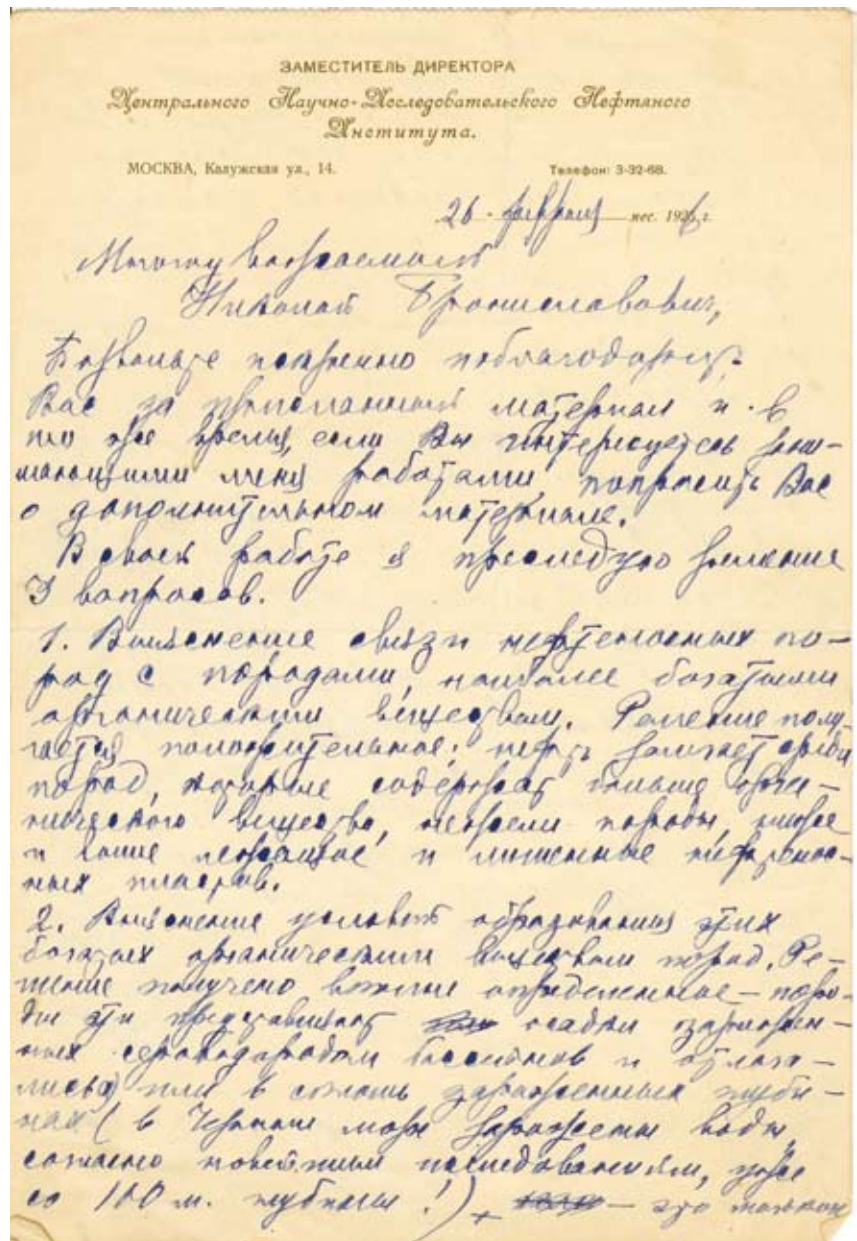 ЗАМЕСТИТЕЛЬ ДИРЕКТОРА
Центрального Научно-Исследовательского Нефтяного
Института.
МОСКВА, Калужская ул., 14. Телефон: 3-32-68.
26 февраля мес. 1926 г.
Многоуважаемый
Николай Брониславович,
Позвольте искренно поблагодарить
Вас за присланный материал и в
то же время, если Вы интересуетесь зани-
мающими меня работами попросить Вас
о дополнительном материале.
В своей работе я преследую решение
3 вопросов.
1. Выяснение связи нефтеносных по-
род с породами, наиболее богатыми
органическими веществом. Решение полу-
чается положительное: нефть залегает среди
пород, которые содержат больше орга-
нического вещества, нежели породы, ниже
и выше лежащие и лишенные нефтенос-
ных пластов.
2. Выяснение условий образования этих
богатых органическим веществом пород. Ре-
шение получено вполне определенное — поро-
ды эти представляют осадки заражен-
ных сероводородом бассейнов и отлага-
лись или в сильно зараженных глуби-
нах (в Черном море заражены воды,
согласно новейшим исследованиям, уже
со 100 м. глубины!) — это